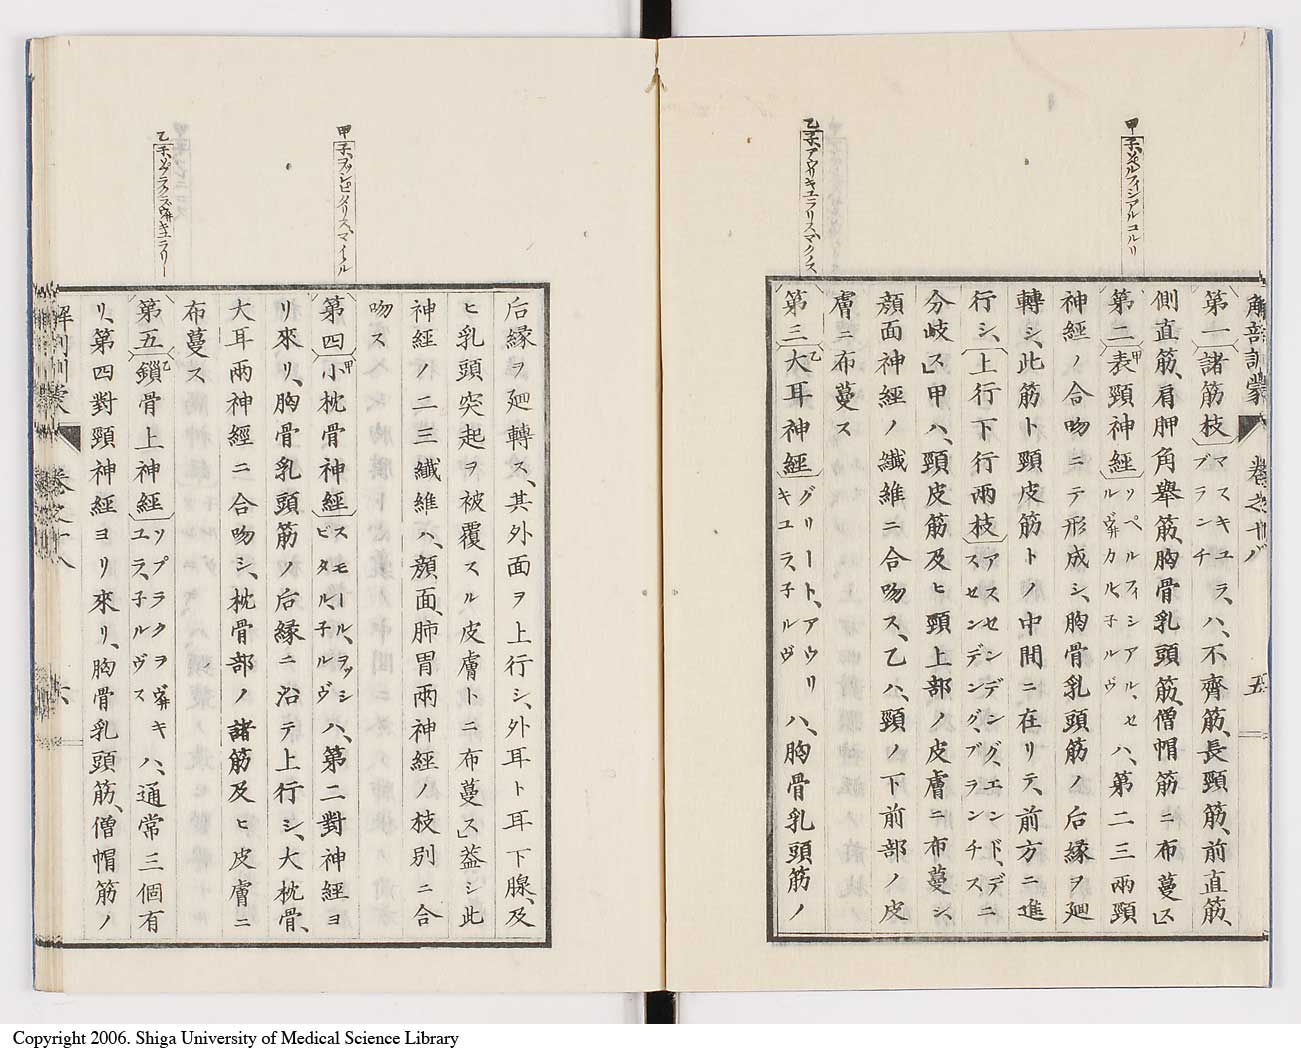 解剖訓蒙 卷之十八 五
甲 子、スペルフィシアルコルリ
乙 子、アウリキュラリスマグノス
第一諸筋枝マスキュラ、ブランチハ、不齊筋、長頸筋、前直筋、
側直筋、肩胛角擧筋、胸骨乳頭筋、僧帽筋ニ布蔓ス」
第二甲表頸神經ソペルフィシアル、セルヴィカル、子ルヴハ、第二三兩頸
神經ノ合吻ニテ形成シ、胸骨乳頭筋ノ后緣ヲ廻
轉シ、此筋ト頸皮筋トノ中間ニ在リテ、前方ニ進
行シ、上行下行兩枝アスセンデング、エンド、デスセンデング、ブランチスニ
分岐ス」甲ハ、頸皮筋及ヒ頸上部ノ皮膚ニ布蔓シ、
顔面神經ノ纖維ニ合吻ス、乙ハ、頸ノ下前部ノ皮
膚ニ布蔓ス
第三乙大耳神經グリート、アウリキュラ、子ルヴハ、胸骨乳頭筋ノ
甲 子、ヲクシピタリスマイノル
乙 子、ソプラクラヴィキュラリー
后緣ヲ廻轉ス、其外面ヲ上行シ、外耳ト耳下腺、及
ヒ乳頭突起ヲ被覆スル、皮膚トニ布蔓ス」蓋シ此
神經ノ二三纖維ハ、顔面、肺胃兩神經ノ枝別ニ合
吻ス
第四甲小枕骨神經スモール、ヲッシピタル、子ルヴハ、第二對神經ヨ
リ來リ、胸骨乳頭筋ノ后緣ニ沿テ上行シ、大枕骨、
大耳兩神經ニ合吻シ、枕骨部ノ諸筋及ヒ皮膚ニ
布蔓ス
第五乙鎖骨上神經ソプラクラヴィキュラ、子ルヴスハ、通常三個有
リ、第四對頸神經ヨリ來リ、胸骨乳頭筋、僧帽筋ノ
解剖訓蒙 卷之十八 六
Copyright 2006. Shiga University of Medical Science Library